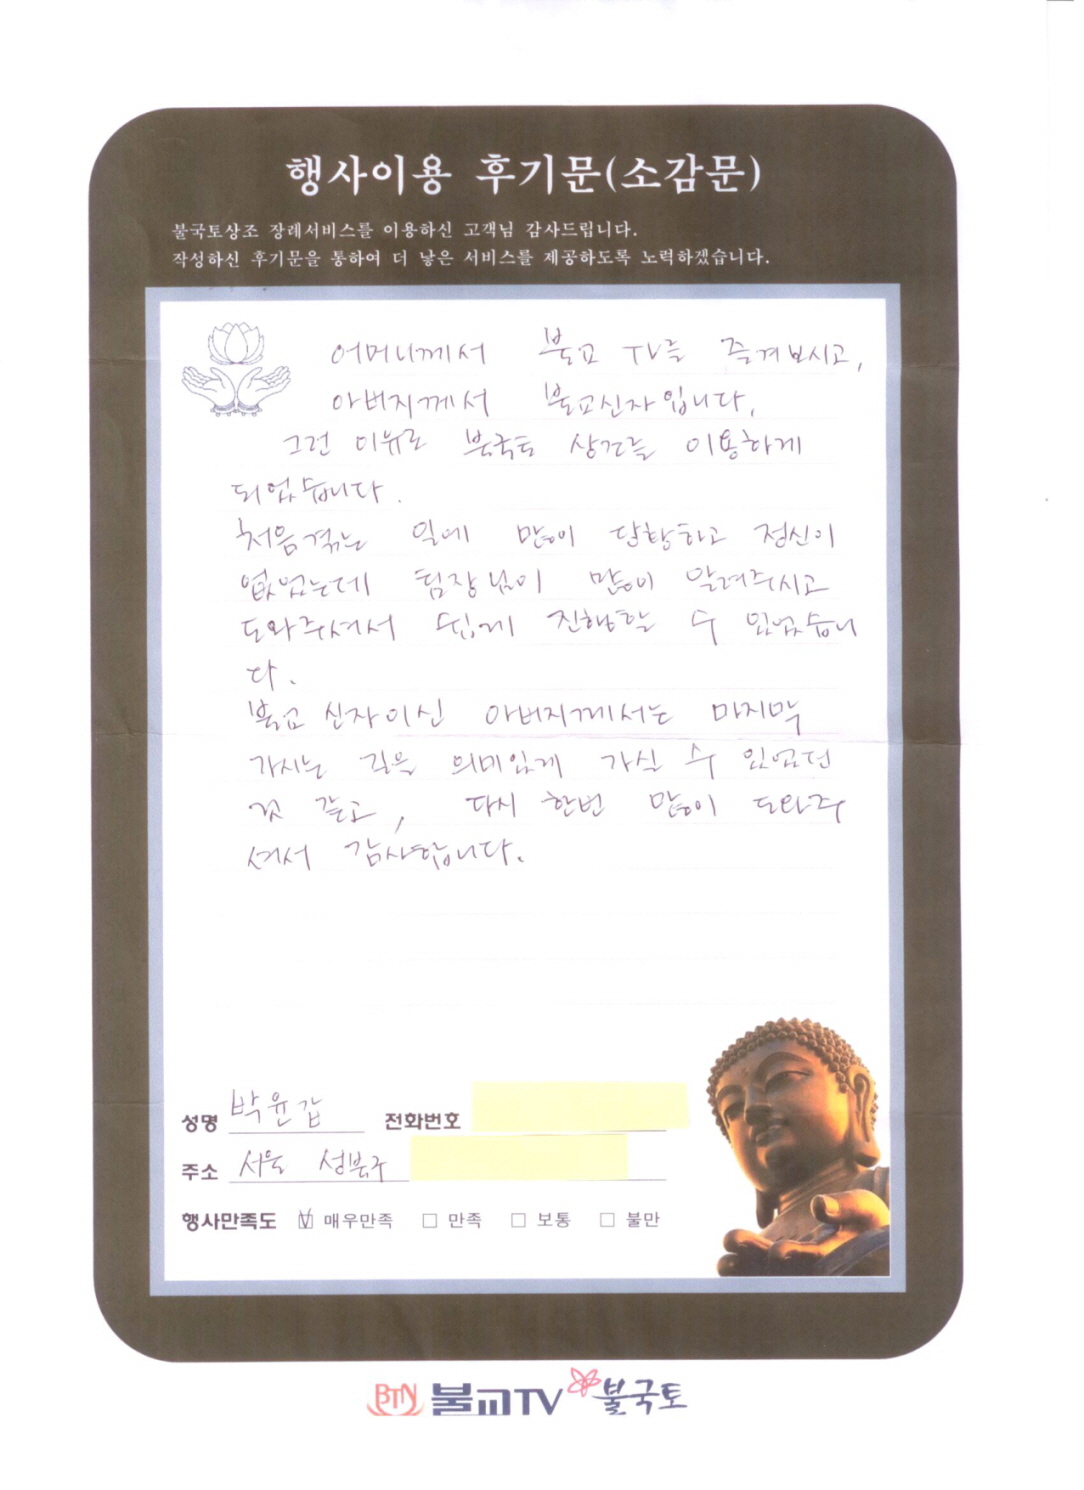 행사이용 후기문(소감문)
불국토상조 장례서비스를 이용하신 고객님 감사드립니다.
작성하신 후기문을 통하여 더 낳은 서비스를 제공하도록 노력하겠습니다.
어머니께서 불교 TV를 즐겨보시고,
아버지께서 불교신자입니다.
그런 이유로 불국토 상조를 이용하게
되었습니다.
처음겪는 일에 많이 당황하고 정신이
없었는데 팀장님이 많이 알려주시고
도와주셔서 쉽게 진행할 수 있었습니
다.
불교 신자이신 아버지께서는 마지막
가시는 길을 의미있게 가실 수 있었던
것 같고, 다시 한번 많이 도와주
셔서 감사합니다.
성명 박윤갑 전화번호
주소 서울 성북구
행사만족도 매우만족 만족 보통 불만
BTN 불교TV 불국토